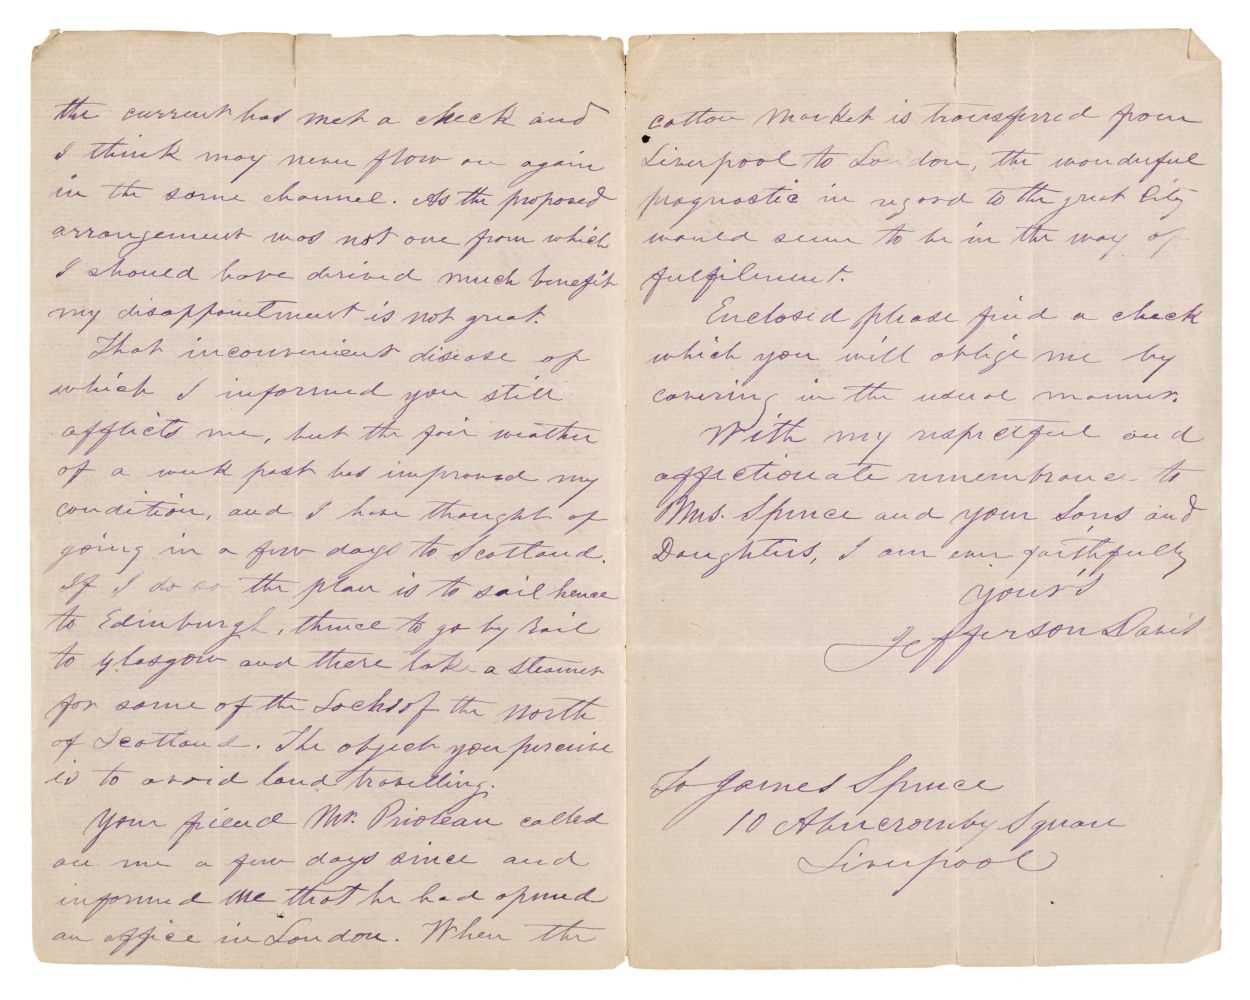 the current has met a check and
I think may never flow on again
in the same channel. As the proposed
arrangement was not one from which
I should have derived much benefit
my disappointment is not great.
That inconvenient disease of
which I informed you still
afflicts me, but the fair weather
of a week past has improved my
condition, and I have thought of
going in a few days to Scotland.
If I do so the plan is to sail hence
to Edinburgh, thence to go by rail
to Glasgow and there take a steamer
for some of the Lochs of the north
of Scotland. The object you perceive
is to avoid land travelling.
Your friend Mr. Prioleau called
on me a few days since and
informed me that he had opened
an office in London. When the
cotton market is transferred from
Liverpool to London, the wonderful
prognostic in regard to the great City
would seem to be in the way of
fulfilment.
Enclosed please find a check
which you will oblige me by
covering in the usual manner.
With my respectful and
affectionate remembrance to
Mrs. Spence and your Sons and
Daughters, I am ever faithfully
your's
Jefferson Davis
To James Spence
10 Abercromby Square
Liverpool